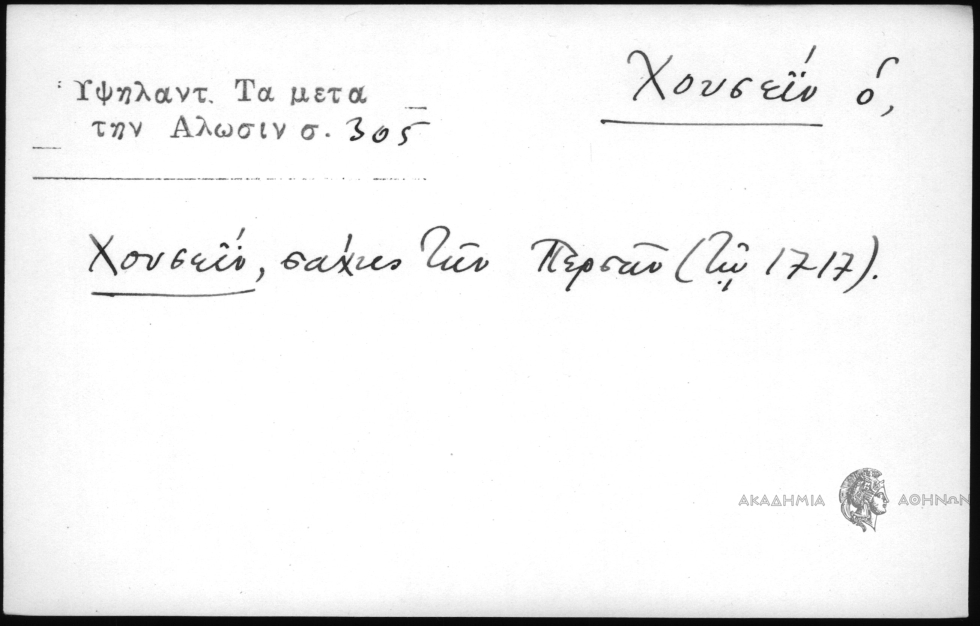 Ὑψηλαντ. Τα μετα
την Αλωσιν σ. 305
Χουσεΐν ὁ,
Χουσεΐν, σάχης τῶν Περσῶν (τῷ 1717).
ΑΚΑΔΗΜΙΑ ΑΘΗΝΩΝ